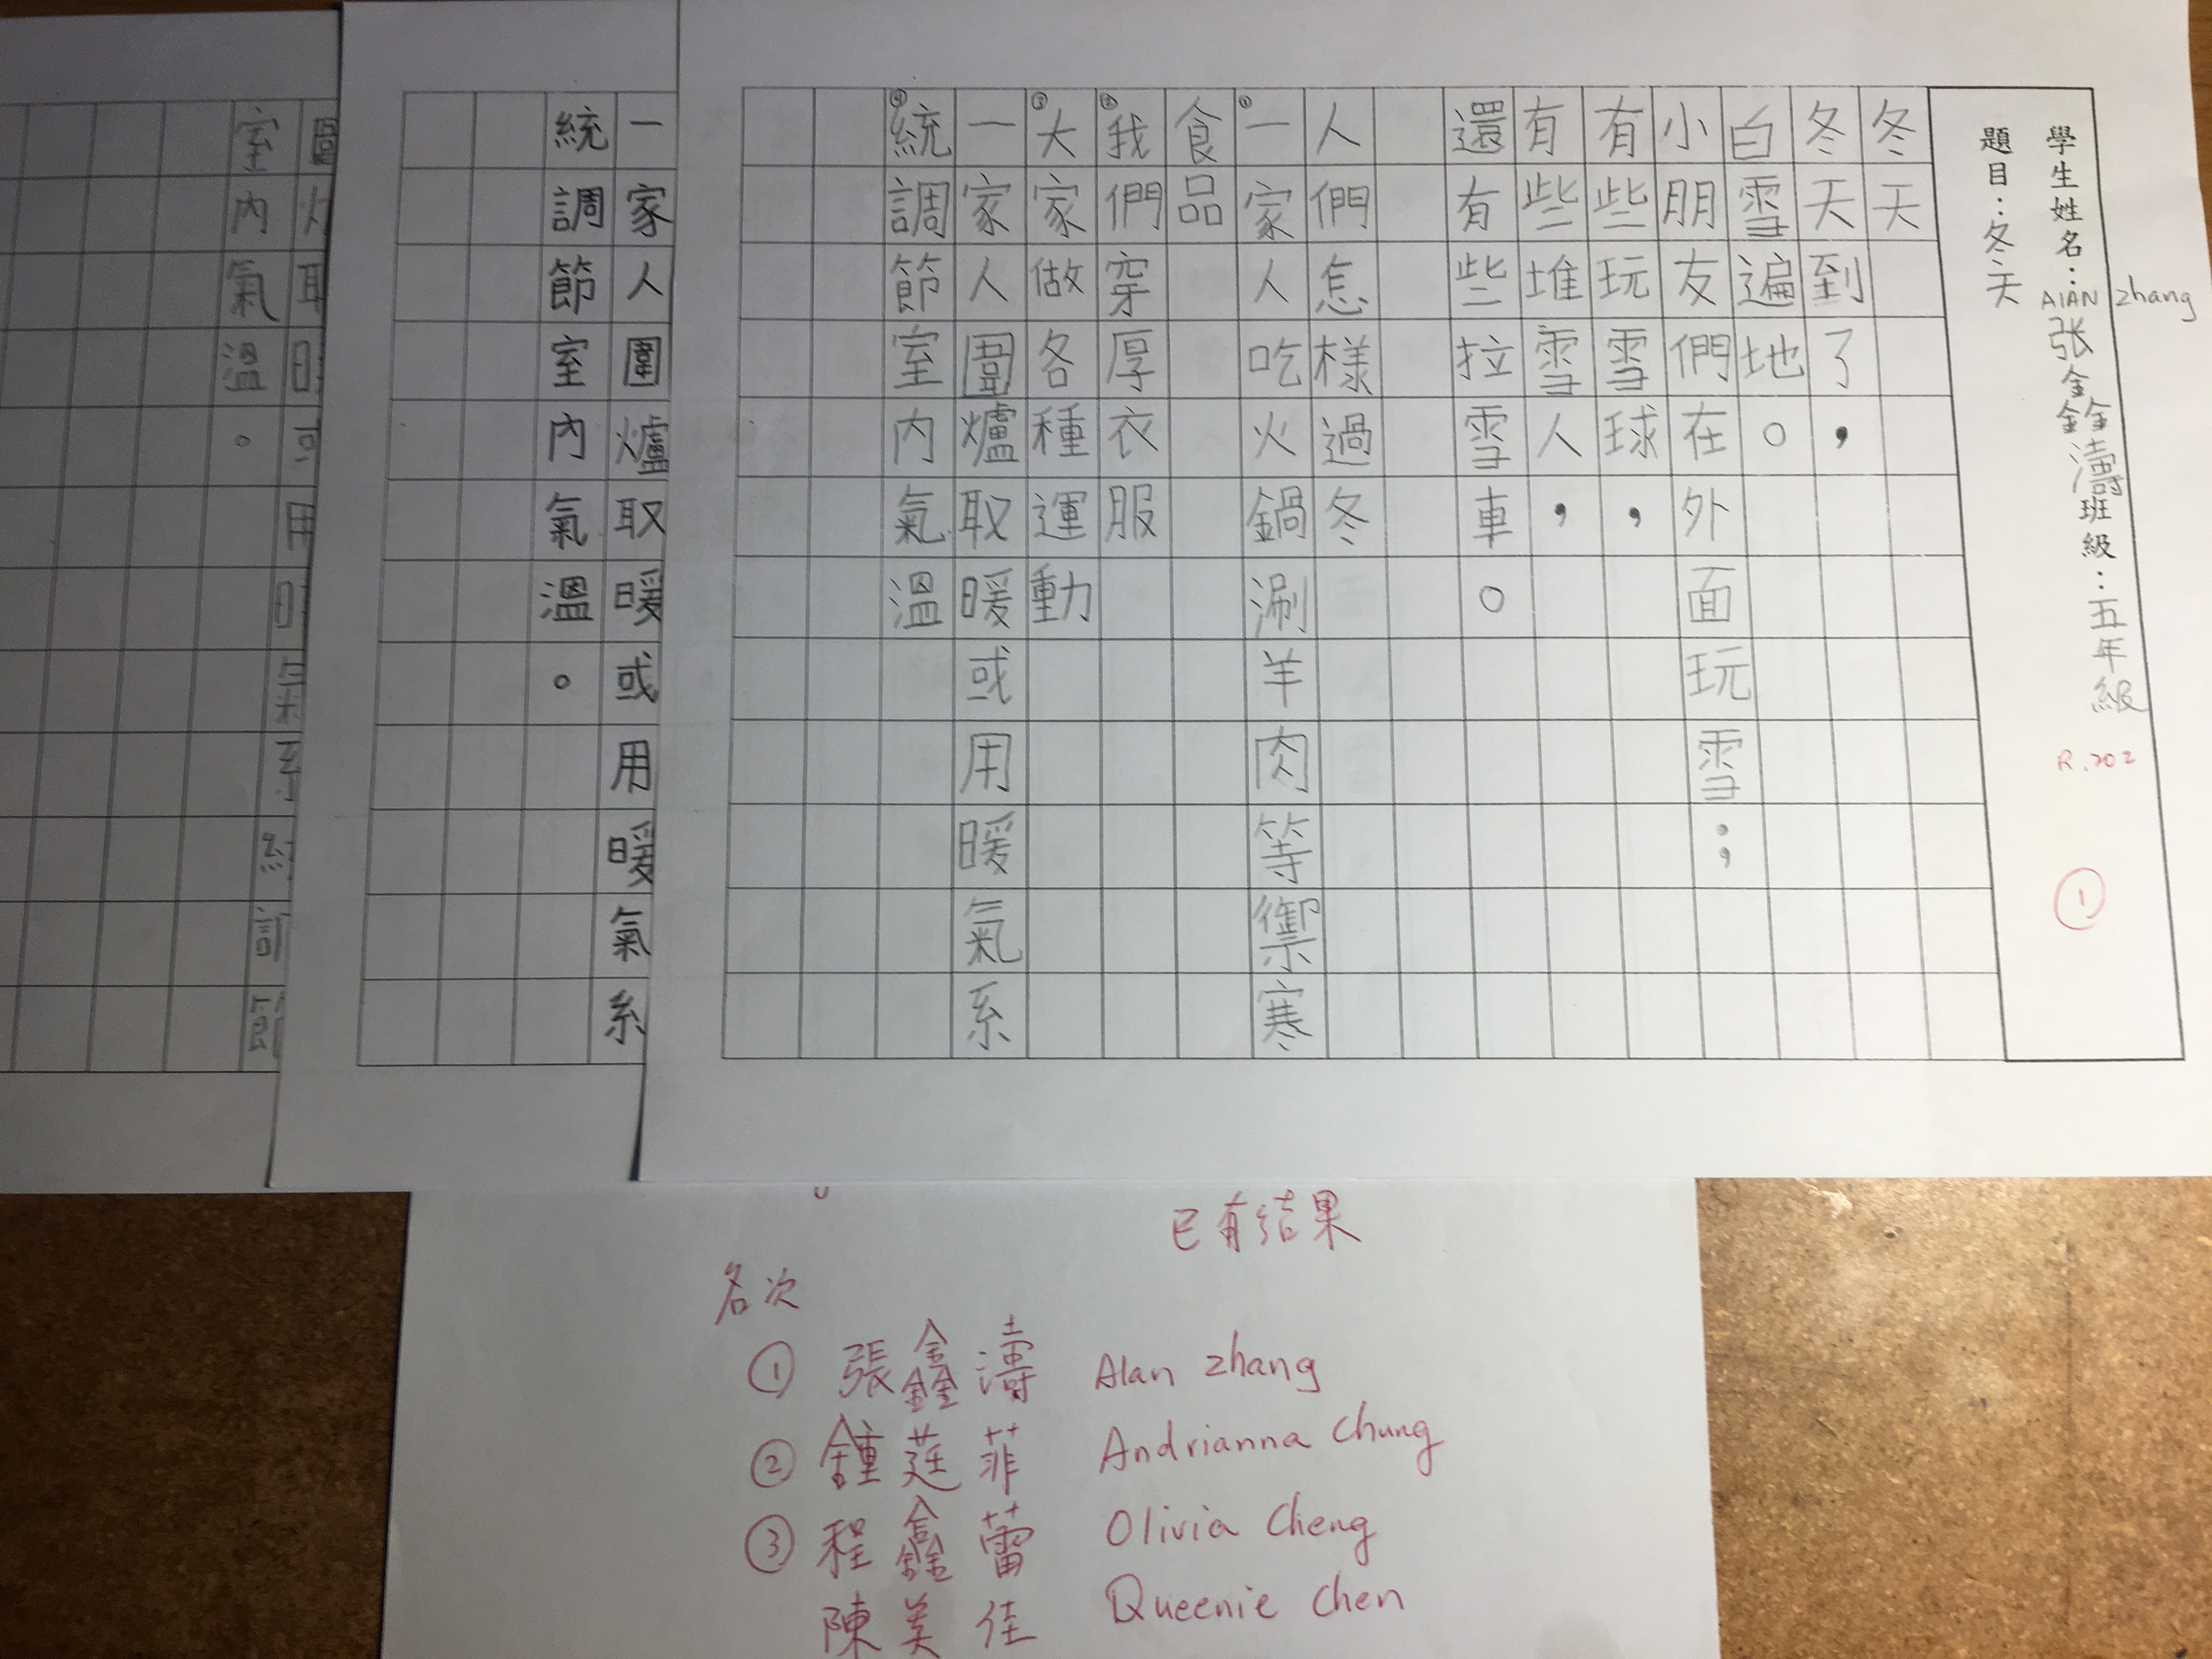 學生姓名：AlAN zhang 张鑫濤 班級：五年級
R.202
①
題目：冬天
冬天
冬天到了，
白雪遍地。
小朋友們在外面玩雪；
有些玩雪球，
有些堆雪人，
還有些拉雪車。
人們怎樣過冬
①一家人吃火鍋涮羊肉等禦寒
食品
②我們穿厚衣服
③大家做各種運動
一家人圍爐取暖或用暖氣系
④統調節室内氣溫
一家人圍爐取暖或用暖氣系
統調節室內氣溫。
室內氣溫。
已有結果
名次
① 張鑫濤 Alan zhang
② 鍾莛菲 Andrianna Chung
③ 程鑫蕾 Olivia Cheng
陳美佳 Queenie Chen